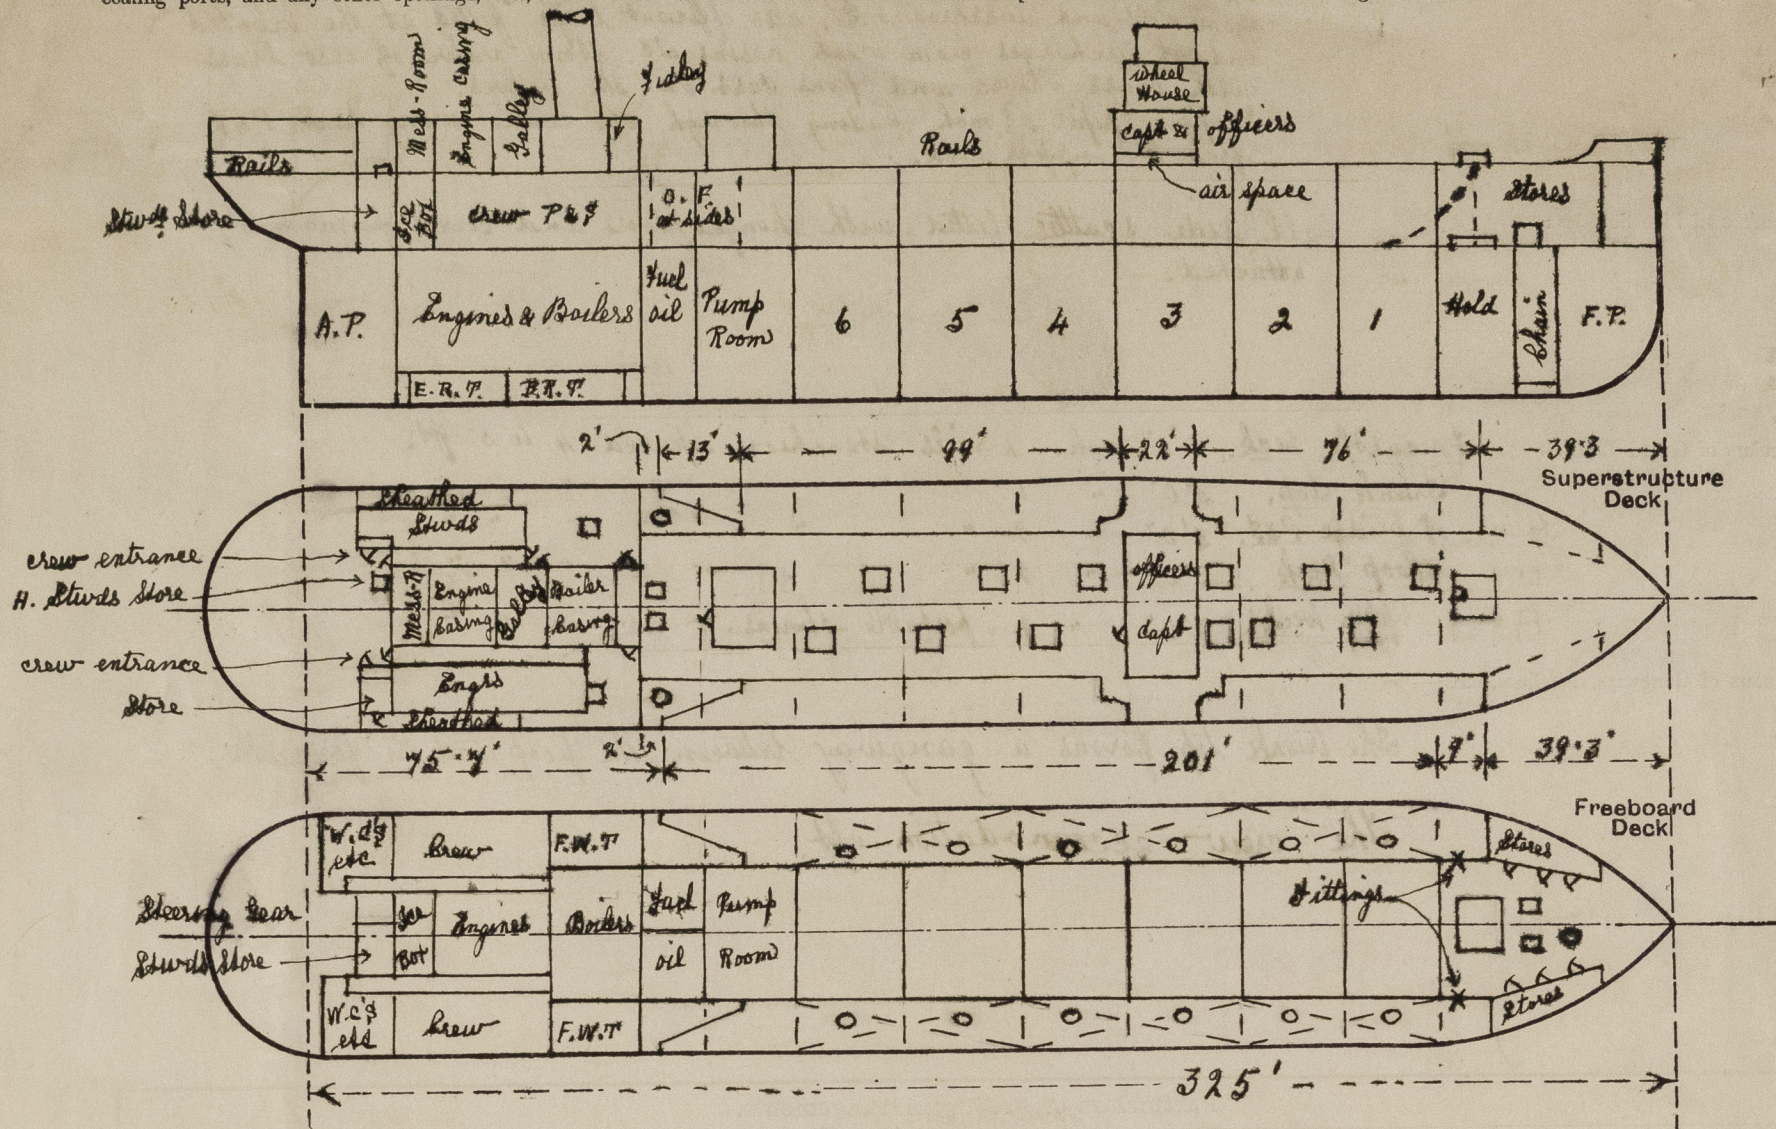 Mess-Room
Engine Casing
Galley
Fidley
Wheel
House
Capt &
officers
Rails
Rails
air space
Stores
Stwds Store
Ice
Box
crew P & S
O. F.
at sides
A.P.
Engines & Boilers
Fuel
oil
Pump
Room
6
5
4
3
2
1
Hold
Chain
F.P.
E.R.T.
B.R.T.
2'
13'
99'
22'
76'
39·3
Superstructure
Deck
Sheathed
Stwds
crew entrance
H. Stwds Store
Mess-R
Engine
Casing
Galley
Boiler
Casing
officers
Capt
crew entrance
Store
Engrs
Sheathed
2'
201'
9'
39·3'
Freeboard
Deck
W.C's
etc
Crew
F.W.T
Stores
Steering Gear
Stwds Store
Ice
Box
Engines
Boilers
Fuel
oil
Pump
Room
Fittings
W.C's
etc
Crew
F.W.T
Stores
325'